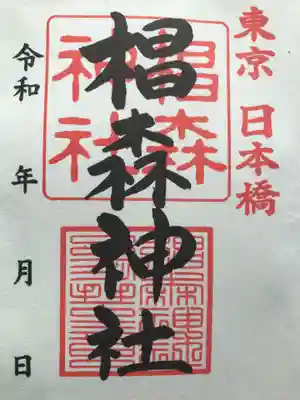 東京 日本橋
椙森神社
椙森神社
令和 年 月 日